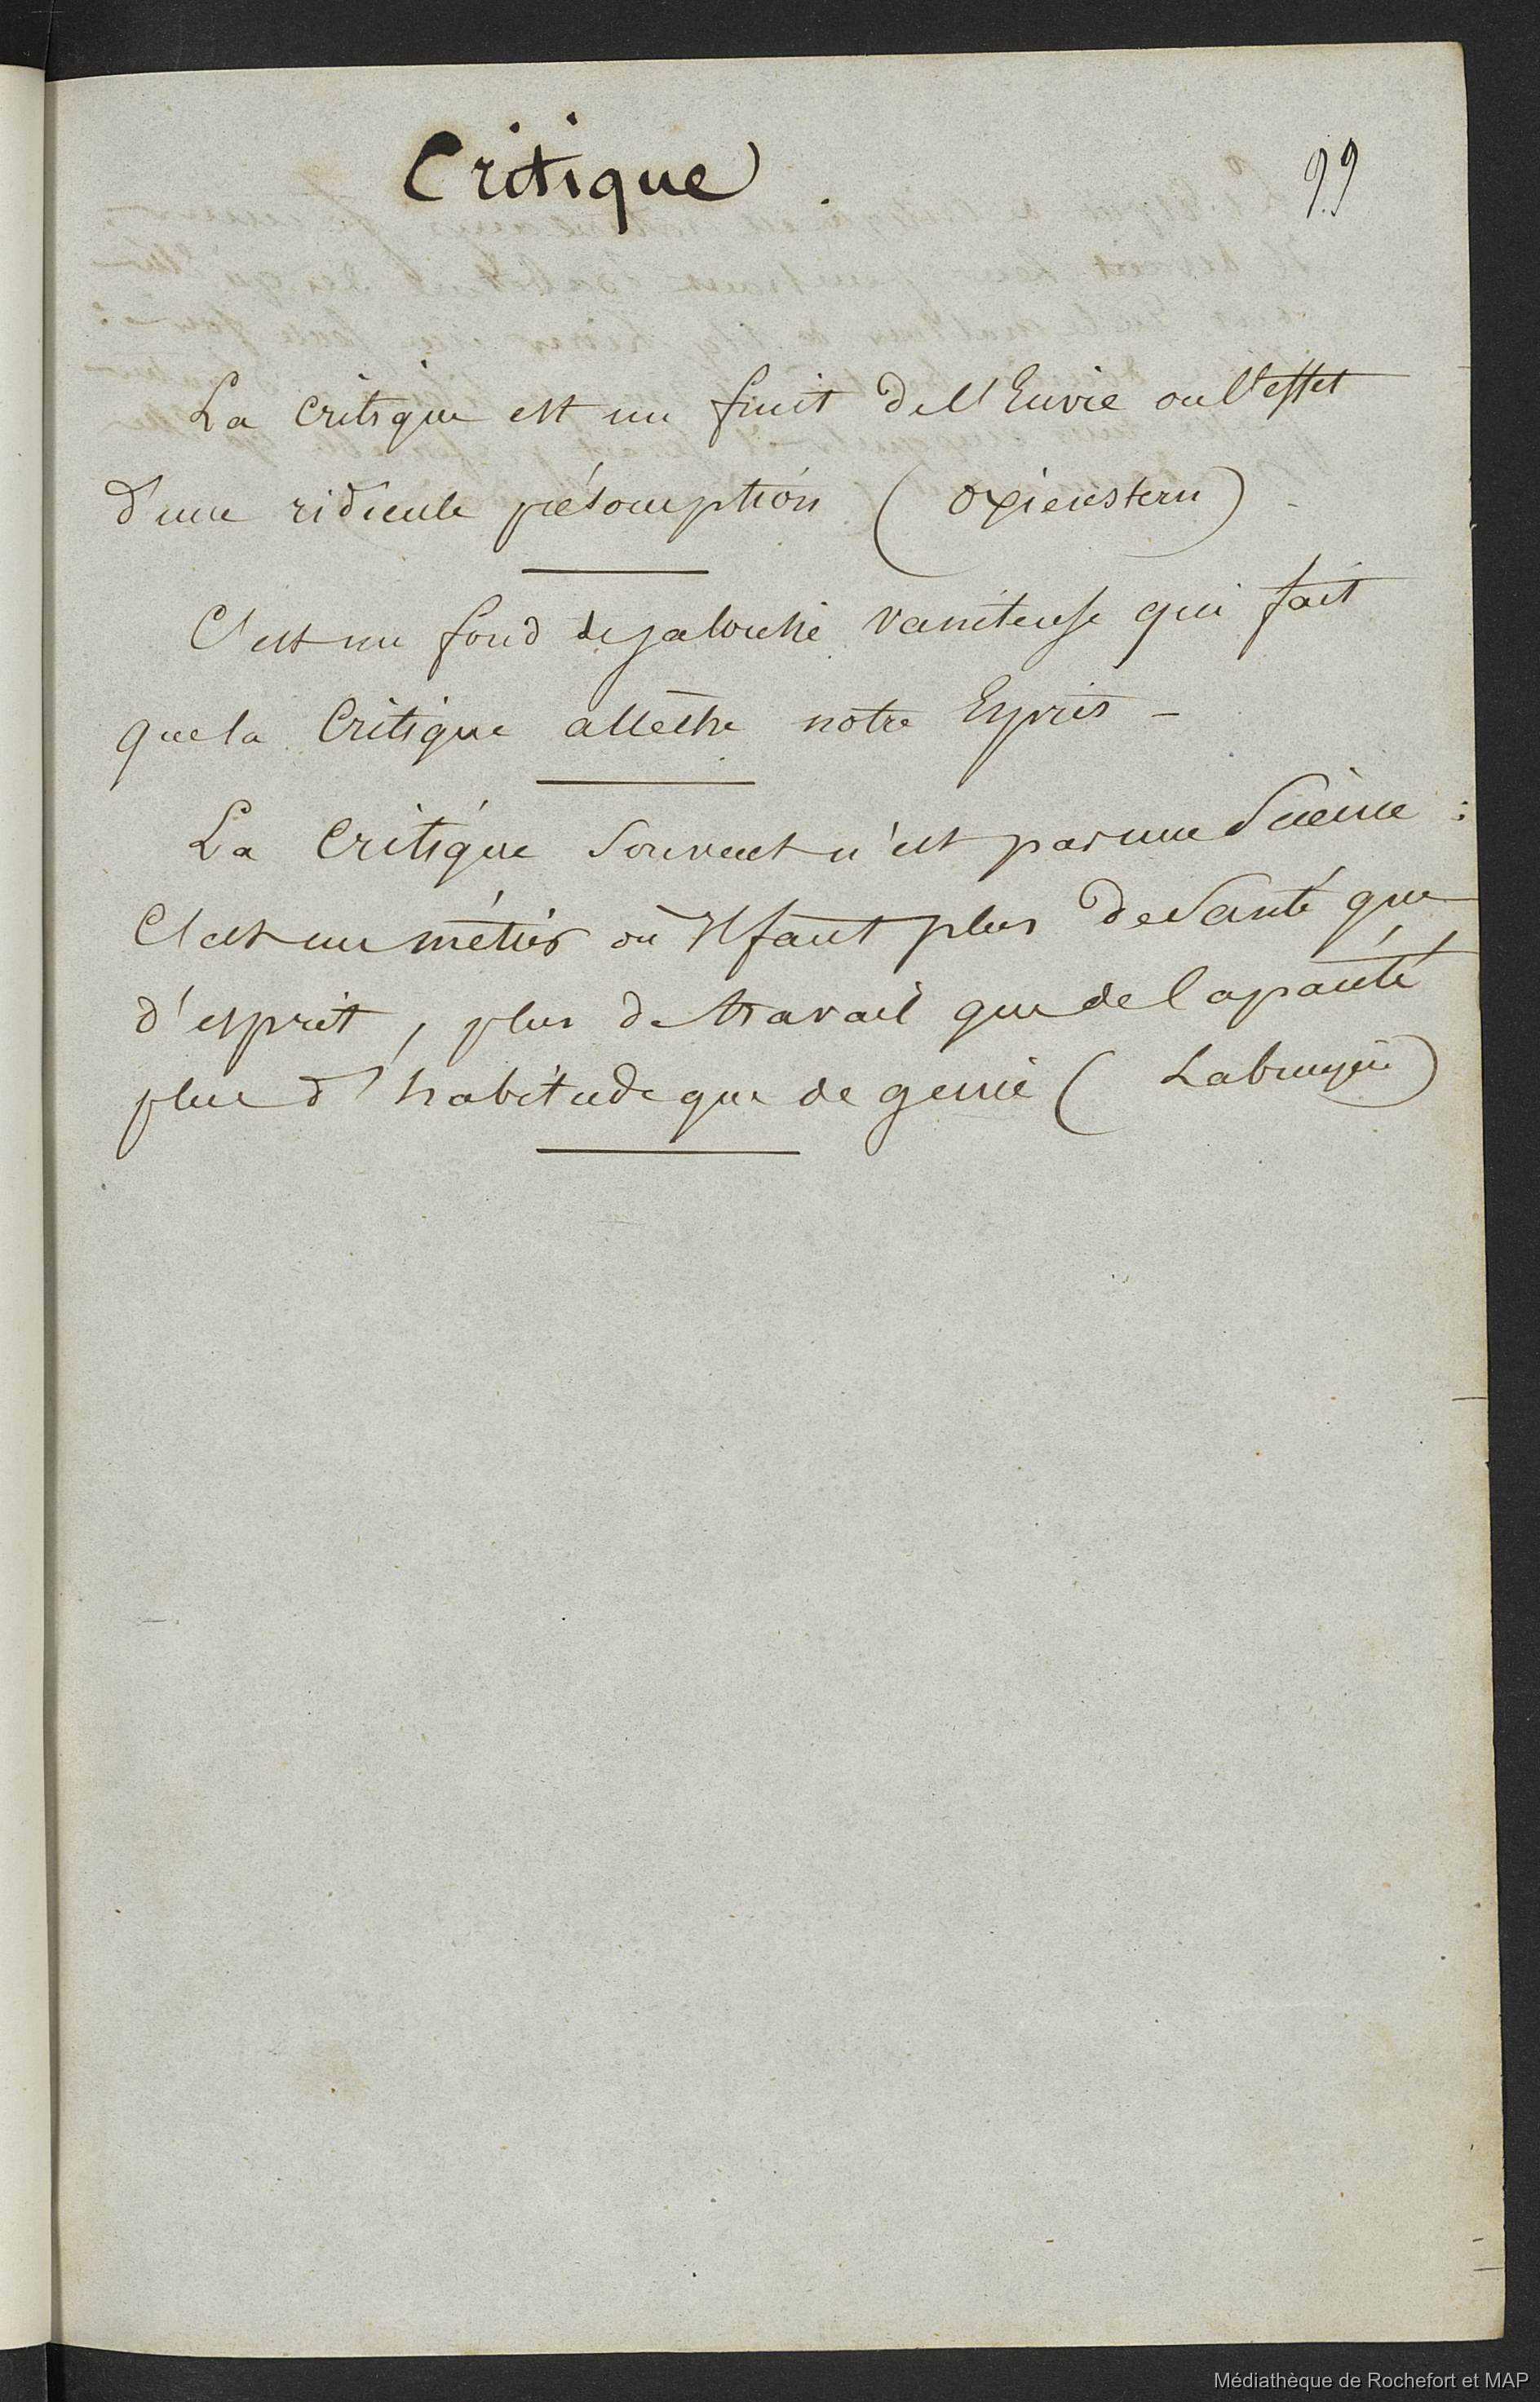 Critique
99
La Critique est un fruit de l'Envie ou l'effet
d'une ridicule présomption (Oxienstern)
C'est un fond de jalousie vaniteuse qui fait
que la Critique allèche notre Esprit -
La Critique souvent n'est pas une Science :
C'est un métier où Il faut plus de Santé que
d'esprit, plus de travail que de Capacité
plus d'habitude que de genie (Labruyère)
Médiathèque de Rochefort et MAP